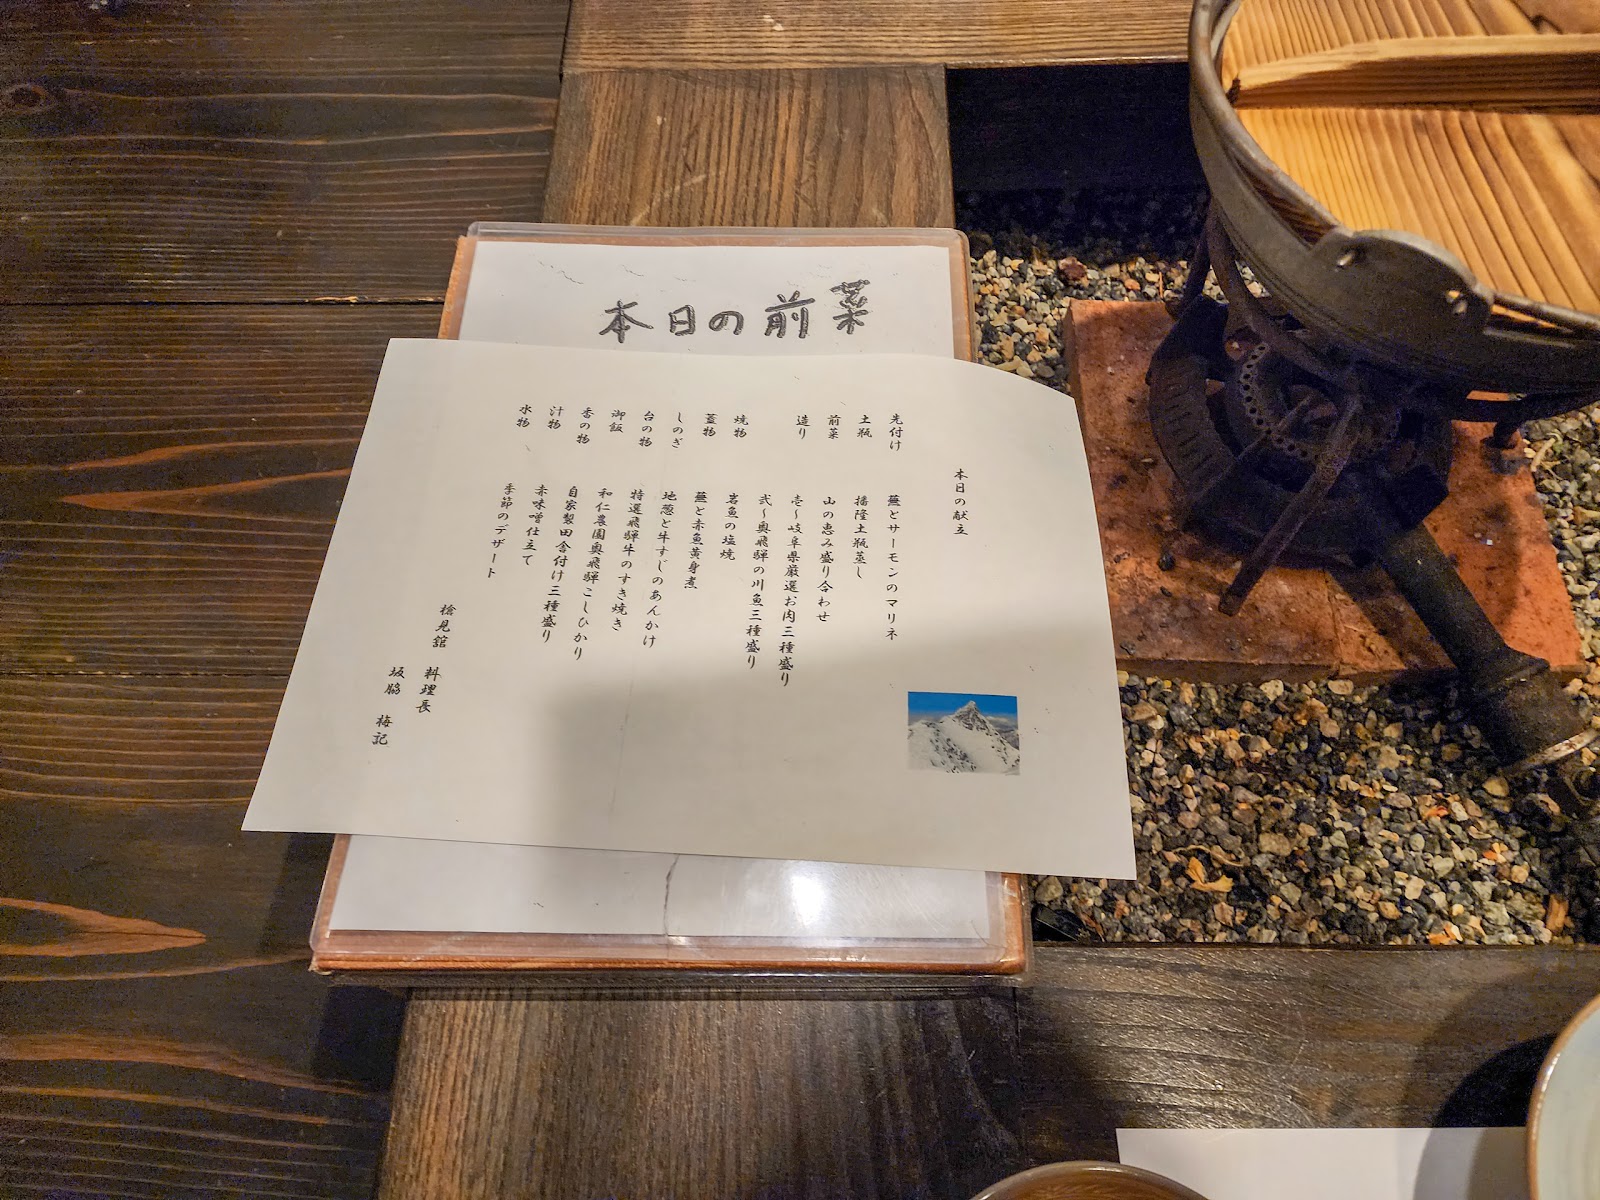 本日の前菜
本日の献立
先付け 蕪とサーモンのマリネ
土瓶 播隆土瓶蒸し
前菜 山の恵み盛り合わせ
造り 壱〜岐阜県厳選お肉三種盛り
弐〜奥飛騨の川魚三種盛り
焼物 岩魚の塩焼
蓋物 蕪と赤魚黄身煮
しのぎ 地葱と牛すじのあんかけ
台の物 特選飛騨牛のすき焼き
御飯 和仁農園奥飛騨こしひかり
香の物 自家製田舎付け三種盛り
汁物 赤味噌仕立て
水物 季節のデザート
槍見舘 料理長
坂脇 梅記